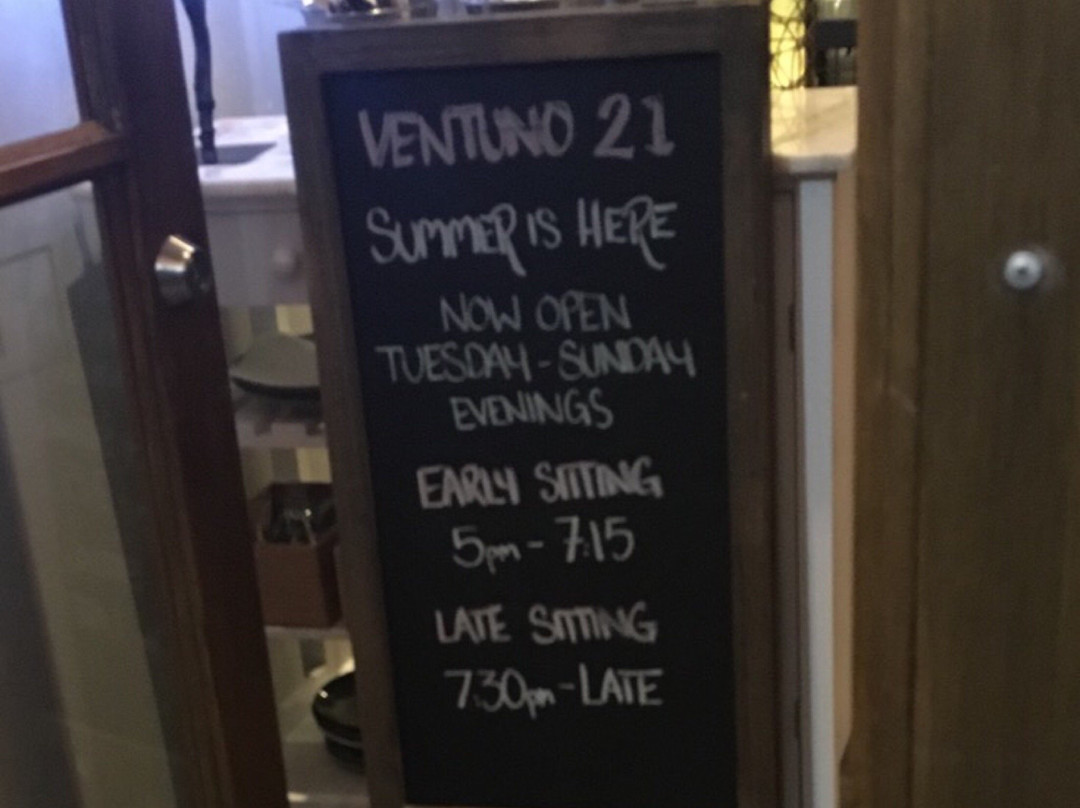 VENTUNO 21
SUMMER IS HERE
NOW OPEN
TUESDAY - SUNDAY
EVENINGS
EARLY SITTING
5pm - 7:15
LATE SITTING
7.30pm - LATE